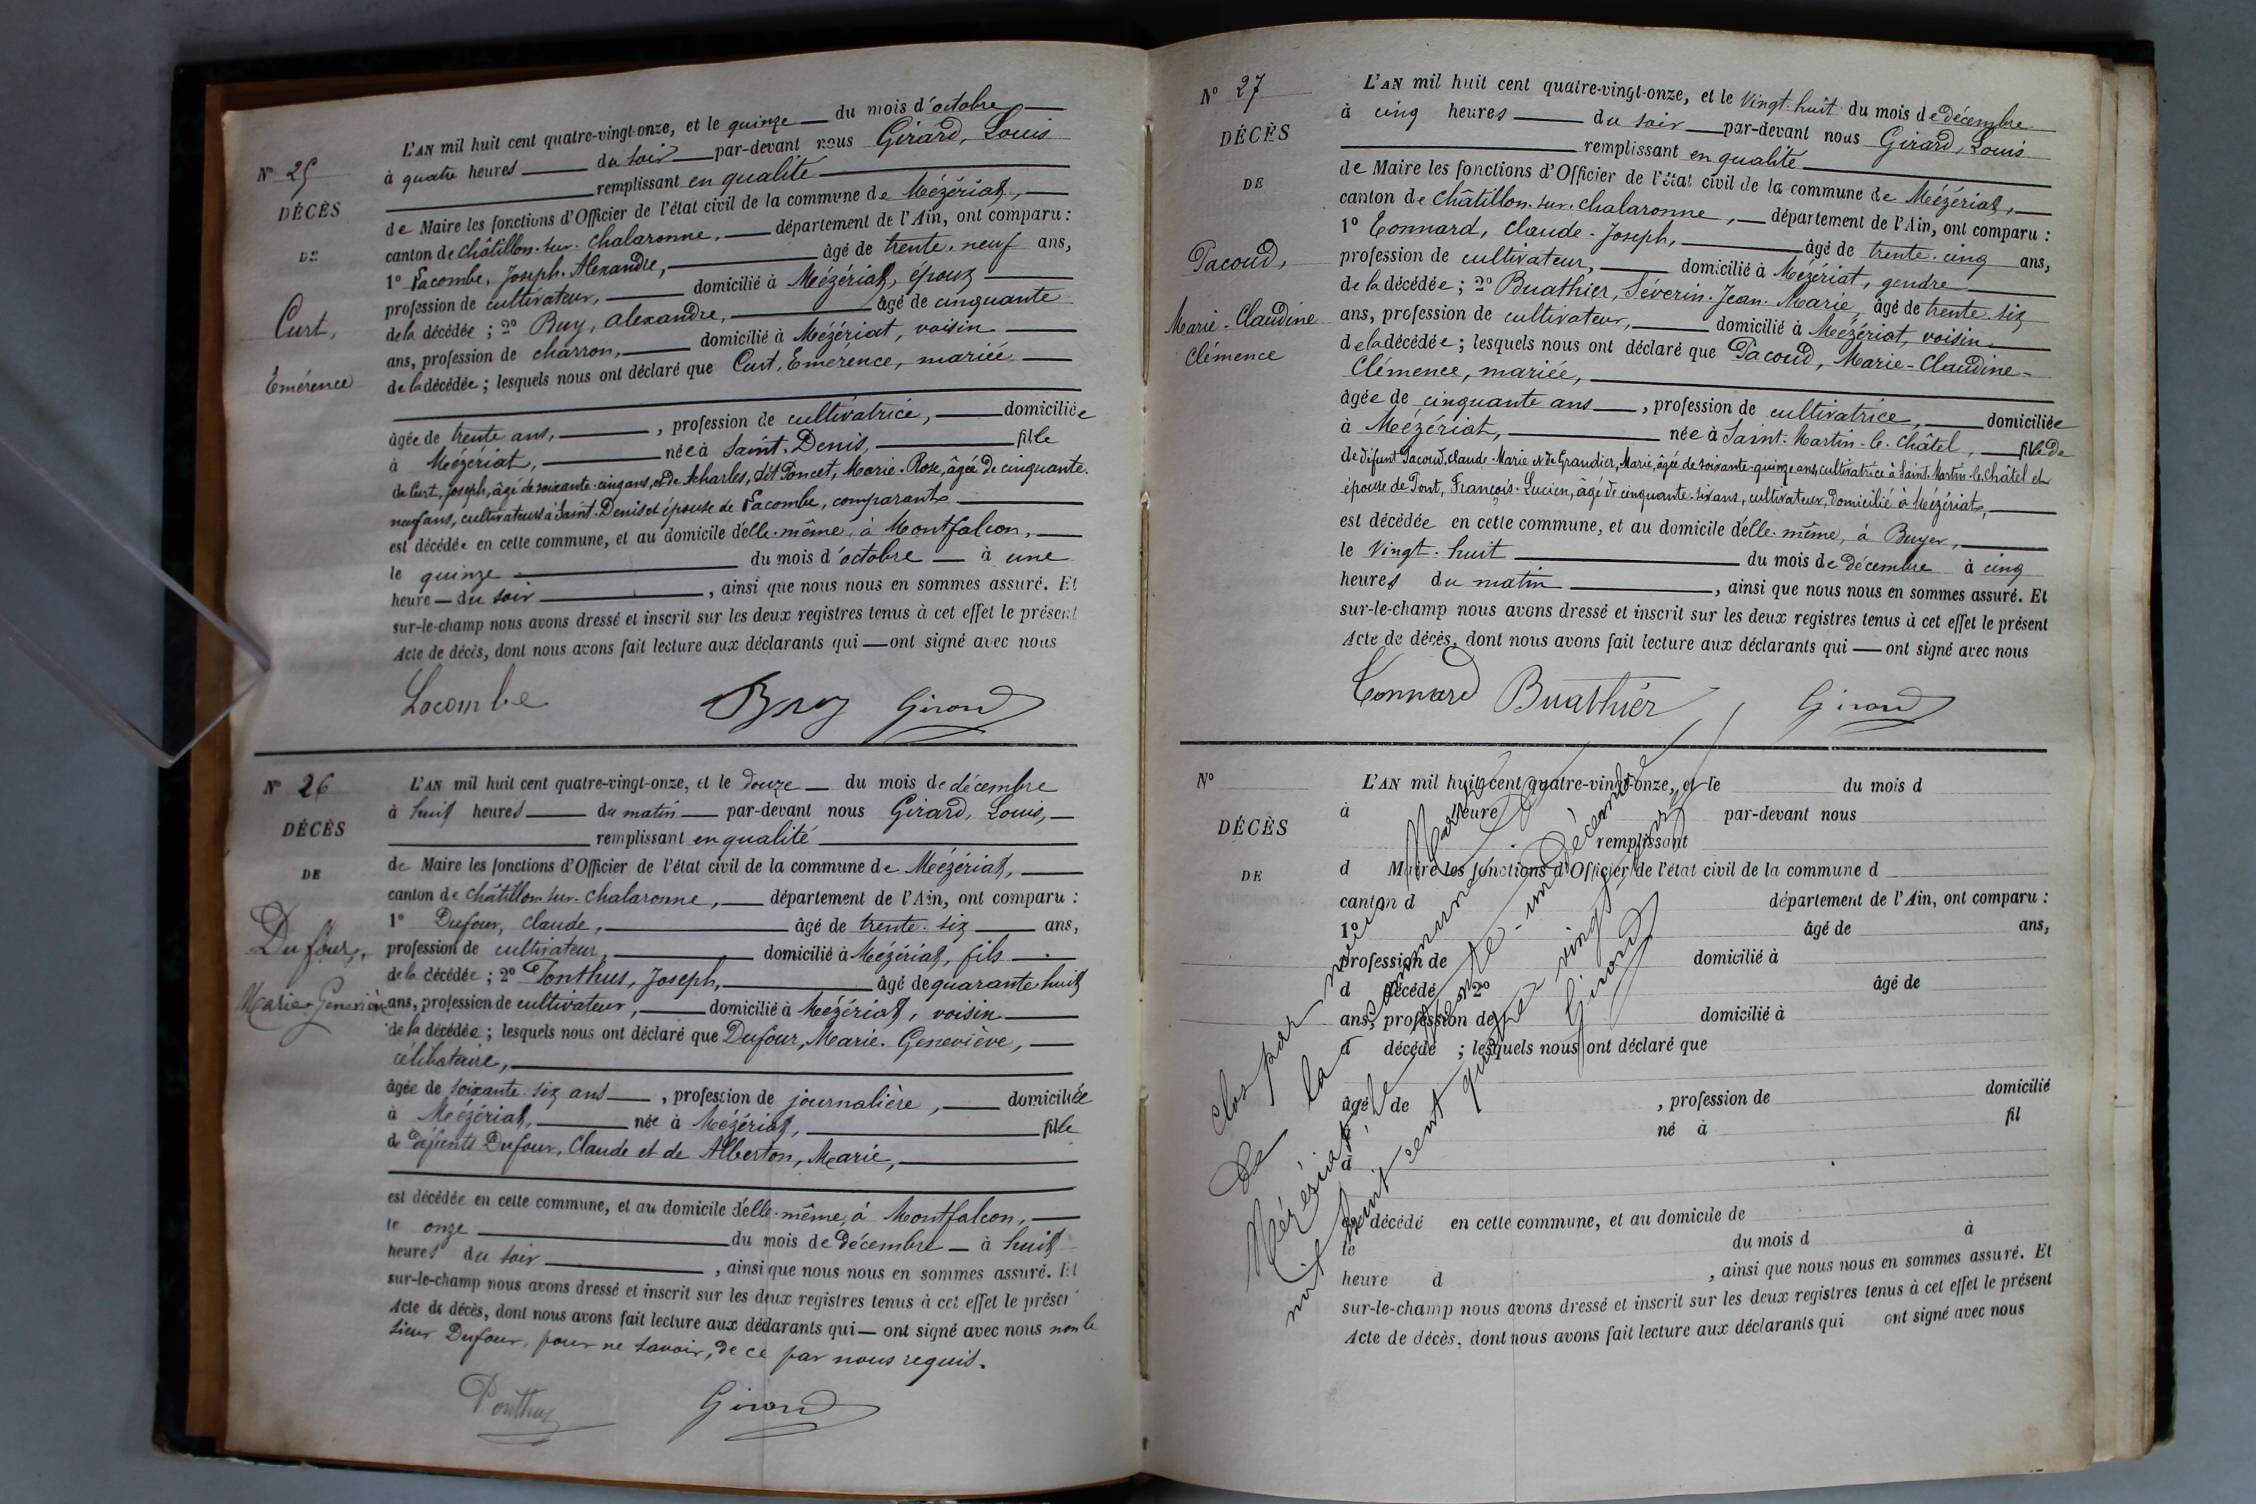 N° 25
DÉCÈS
DE
Curt,
Emérence
L'AN mil huit cent quatre-vingt-onze, et le quinze du mois d'octobre
à quatre heures du soir par-devant nous Girard, Louis
remplissant en qualité
de Maire les fonctions d'Officier de l'état civil de la commune de Mézériat,
canton de Châtillon-sur-Chalaronne, département de l'Ain, ont comparu :
1° Lacombe, Joseph-Alexandre, âgé de trente-neuf ans,
profession de cultivateur, domicilié à Mézériat, époux
de la décédée ; 2° Buy, Alexandre, âgé de cinquante
ans, profession de charron, domicilié à Mézériat, voisin
de la décédée ; lesquels nous ont déclaré que Curt, Emérence, mariée
âgée de trente ans, , profession de cultivatrice, domiciliée
à Mézériat, née à Saint-Denis, fille
de Curt, Joseph, âgé de soixante-cinq ans, et de Acharles, dit Poncet, Marie-Rose, âgée de cinquante-
neuf ans, cultivateurs à Saint-Denis et épouse de Lacombe, comparant
est décédée en cette commune, et au domicile d'elle-même, à Montfalcon,
le quinze du mois d'octobre à une
heure du soir , ainsi que nous nous en sommes assuré. Et
sur-le-champ nous avons dressé et inscrit sur les deux registres tenus à cet effet le présent
Acte de décès, dont nous avons fait lecture aux déclarants qui ont signé avec nous
Lacombe Buy Girard
N° 26
DÉCÈS
DE
Dufour,
Marie-Geneviève
L'AN mil huit cent quatre-vingt-onze, et le douze du mois de décembre
à huit heures du matin par-devant nous Girard, Louis,
remplissant en qualité
de Maire les fonctions d'Officier de l'état civil de la commune de Mézériat,
canton de Châtillon-sur-Chalaronne, département de l'Ain, ont comparu :
1° Dufour, Claude, âgé de trente-six ans,
profession de cultivateur, domicilié à Mézériat, fils
de la décédée ; 2° Ponthus, Joseph, âgé de quarante-huit
ans, profession de cultivateur, domicilié à Mézériat, voisin
de la décédée ; lesquels nous ont déclaré que Dufour, Marie-Geneviève,
célibataire,
âgée de soixante-six ans , profession de journalière, domiciliée
à Mézériat, née à Mézériat, fille
de défunts Dufour, Claude et de Alberton, Marie,
est décédée en cette commune, et au domicile d'elle-même, à Montfalcon,
le onze du mois de décembre à huit
heures du soir , ainsi que nous nous en sommes assuré. Et
sur-le-champ nous avons dressé et inscrit sur les deux registres tenus à cet effet le présent
Acte de décès, dont nous avons fait lecture aux déclarants qui ont signé avec nous non le
sieur Dufour, pour ne savoir, de ce par nous requis.
Ponthus Girard
N° 27
DÉCÈS
DE
Pacoud,
Marie-Claudine
Clémence
L'AN mil huit cent quatre-vingt-onze, et le vingt-huit du mois de décembre
à cinq heures du soir par-devant nous Girard, Louis
remplissant en qualité
de Maire les fonctions d'Officier de l'état civil de la commune de Mézériat,
canton de Châtillon-sur-Chalaronne, département de l'Ain, ont comparu :
1° Connard, Claude-Joseph, âgé de trente-cinq ans,
profession de cultivateur, domicilié à Mézériat, gendre
de la décédée ; 2° Buathier, Séverin-Jean-Marie, âgé de trente-six
ans, profession de cultivateur, domicilié à Mézériat, voisin
de la décédée ; lesquels nous ont déclaré que Pacoud, Marie-Claudine-
Clémence, mariée,
âgée de cinquante ans , profession de cultivatrice, domiciliée
à Mézériat, née à Saint-Martin-le-Châtel, fille de
de défunt Pacoud, Claude-Marie et de Grandier, Marie, âgée de soixante-quinze ans, cultivatrice à Saint-Martin-le-Châtel et
épouse de Pont, François-Lucien, âgé de cinquante-six ans, cultivateur, domicilié à Mézériat,
est décédée en cette commune, et au domicile d'elle-même, à Buyer,
le vingt-huit du mois de décembre à cinq
heures du matin , ainsi que nous nous en sommes assuré. Et
sur-le-champ nous avons dressé et inscrit sur les deux registres tenus à cet effet le présent
Acte de décès, dont nous avons fait lecture aux déclarants qui ont signé avec nous
Connard Buathier Girard
N°
DÉCÈS
DE
L'AN mil huit cent quatre-vingt-onze, et le du mois d
à heure par-devant nous
remplissant
d Maire les fonctions d'Officier de l'état civil de la commune d
canton d département de l'Ain, ont comparu :
1° âgé de ans,
profession de domicilié à
d décédé 2° âgé de
ans, profession de domicilié à
d décédé ; lesquels nous ont déclaré que
âgé de , profession de domicilié
à né à fil
d
est décédé en cette commune, et au domicile de
le du mois d à
heure d , ainsi que nous nous en sommes assuré. Et
sur-le-champ nous avons dressé et inscrit sur les deux registres tenus à cet effet le présent
Acte de décès, dont nous avons fait lecture aux déclarants qui ont signé avec nous
Clos par nous Maire
de la commune de
Mézériat, le trente-un décembre
mil huit cent quatre-vingt-onze
Girard